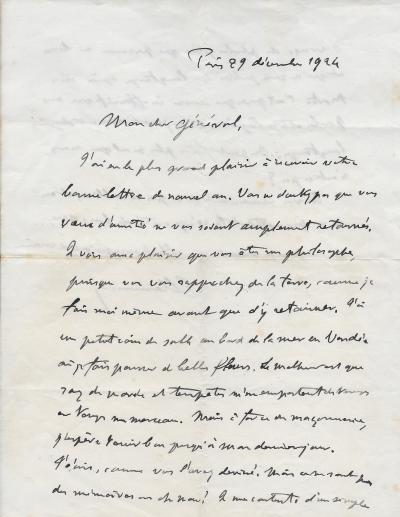 Paris 29 décembre 1924
Mon cher Général,
J'ai eu le plus grand plaisir à recevoir votre
bonne lettre de nouvel an. Vous ne doutez pas que vos
vœux d'amitié ne vous soient amplement retournés.
Je vois avec plaisir que vous êtes un philosophe,
puisque vous vous rapprochez de la terre, comme je
fais moi même avant que d'y retourner. J'ai
un petit coin de sable au bord de la mer en Vendée
où je fais pousser de belles fleurs. Le malheur est que
raz de marée et tempêtes m'en emportent
un morceau. Mais à force de maçonnerie,
j'espère tenir bon jusqu'à mon dernier jour.
J'écris, comme vous l'avez deviné. Mais ce ne sont pas
des mémoires Je me contente d'un simple